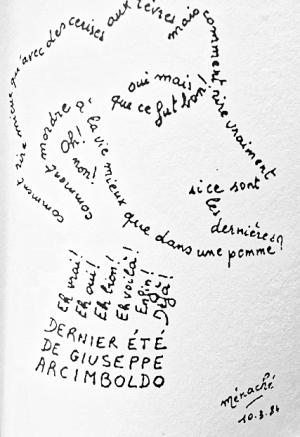 comment rire mieux qu'avec des cerises aux lèvres
mais comment rire vraiment
si ce sont
les
dernières?
oui mais
que ce fut bon!
comment mordre à la vie mieux que dans une pomme!
Oh!
non!
Eh vrai!
Eh oui!
Eh bien!
Eh voilà!
Enfin!
Déjà!
DERNIER ÉTÉ
DE GIUSEPPE
ARCIMBOLDO
Ménaché
10.3.84